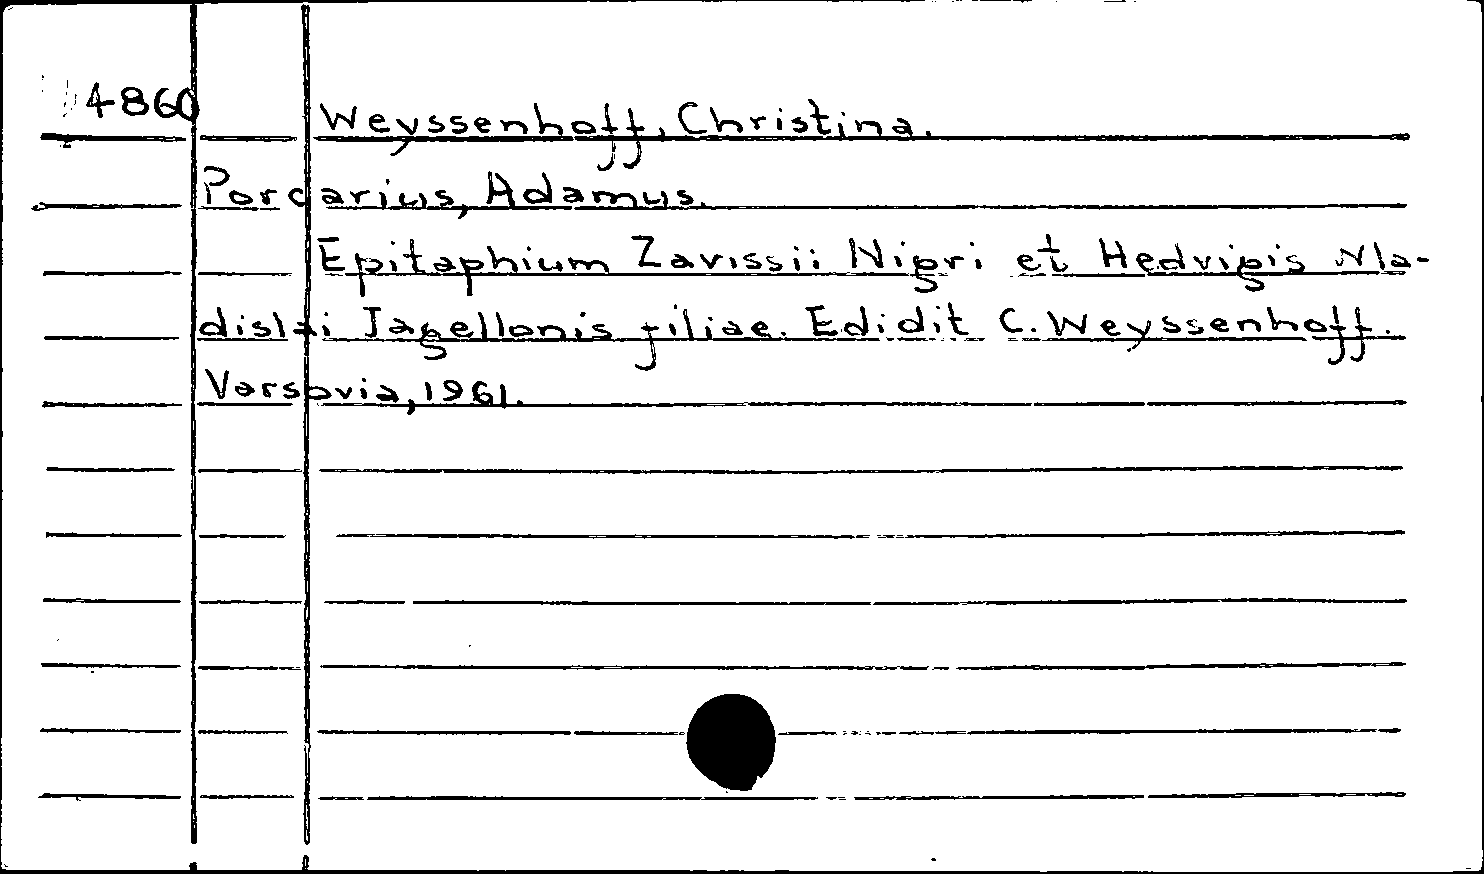 4860
Weyssenhoff, Christina.
Porcarius, Adamus.
Epitaphium Zavissii Nigri et Hedvigis Vla-
dislai Jagellonis filiae. Edidit C. Weyssenhoff.
Varsovia, 1961.